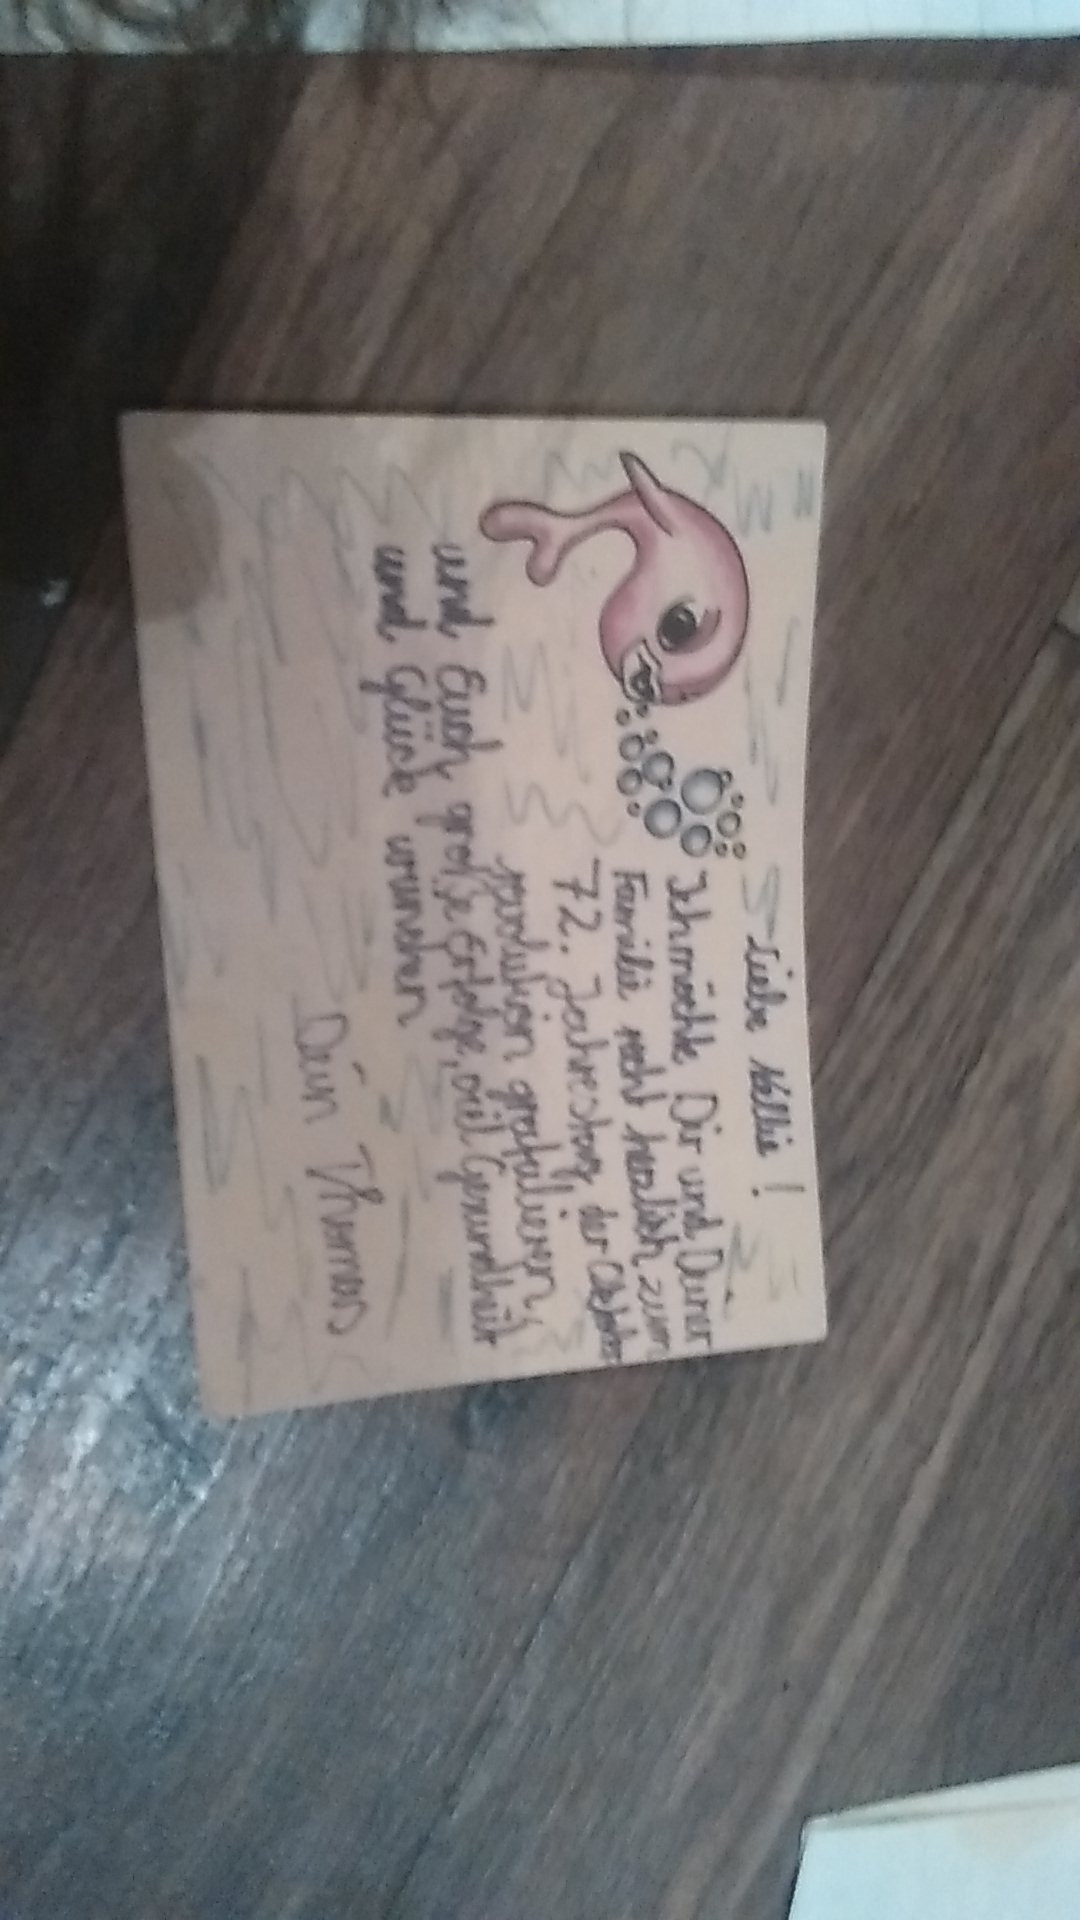 Liebe Nellie!
Ich möchte Dir und Deiner
Familie recht herzlich zum
72. Jahrestag der Oktober
revolution gratulieren,
und Euch große Erfolge, viel Gesundheit
und Glück wünschen
Dein Thomas